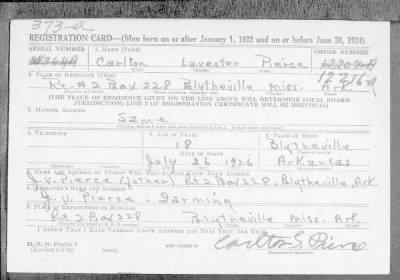 373-a
REGISTRATION CARD—(Men born on or after January 1, 1922 and on or before June 30, 1924)
SERIAL NUMBER 1. NAME (Print) ORDER NUMBER
Carlton Lavester Pierce
12216
2. PLACE OF RESIDENCE (Print)
Rt. #2 Box 228 Blytheville Miss. Ark.
[THE PLACE OF RESIDENCE GIVEN ON THE LINE ABOVE WILL DETERMINE LOCAL BOARD
JURISDICTION; LINE 2 OF REGISTRATION CERTIFICATE WILL BE IDENTICAL]
3. MAILING ADDRESS
Same
4. TELEPHONE 5. AGE IN YEARS 6. PLACE OF BIRTH
18 Blytheville
DATE OF BIRTH
July 26 1926 Arkansas
7. NAME AND ADDRESS OF PERSON WHO WILL ALWAYS KNOW YOUR ADDRESS
J. V. Pierce (father) Rt 2 Box 228, Blytheville, Ark
8. EMPLOYER'S NAME AND ADDRESS
J. V. Pierce - Farming
9. PLACE OF EMPLOYMENT OR BUSINESS
Rt 2 Box 228 Blytheville Miss. Ark.
I AFFIRM THAT I HAVE VERIFIED ABOVE ANSWERS AND THAT THEY ARE TRUE.
D. S. S. Form 1
Carlton L. Pierce